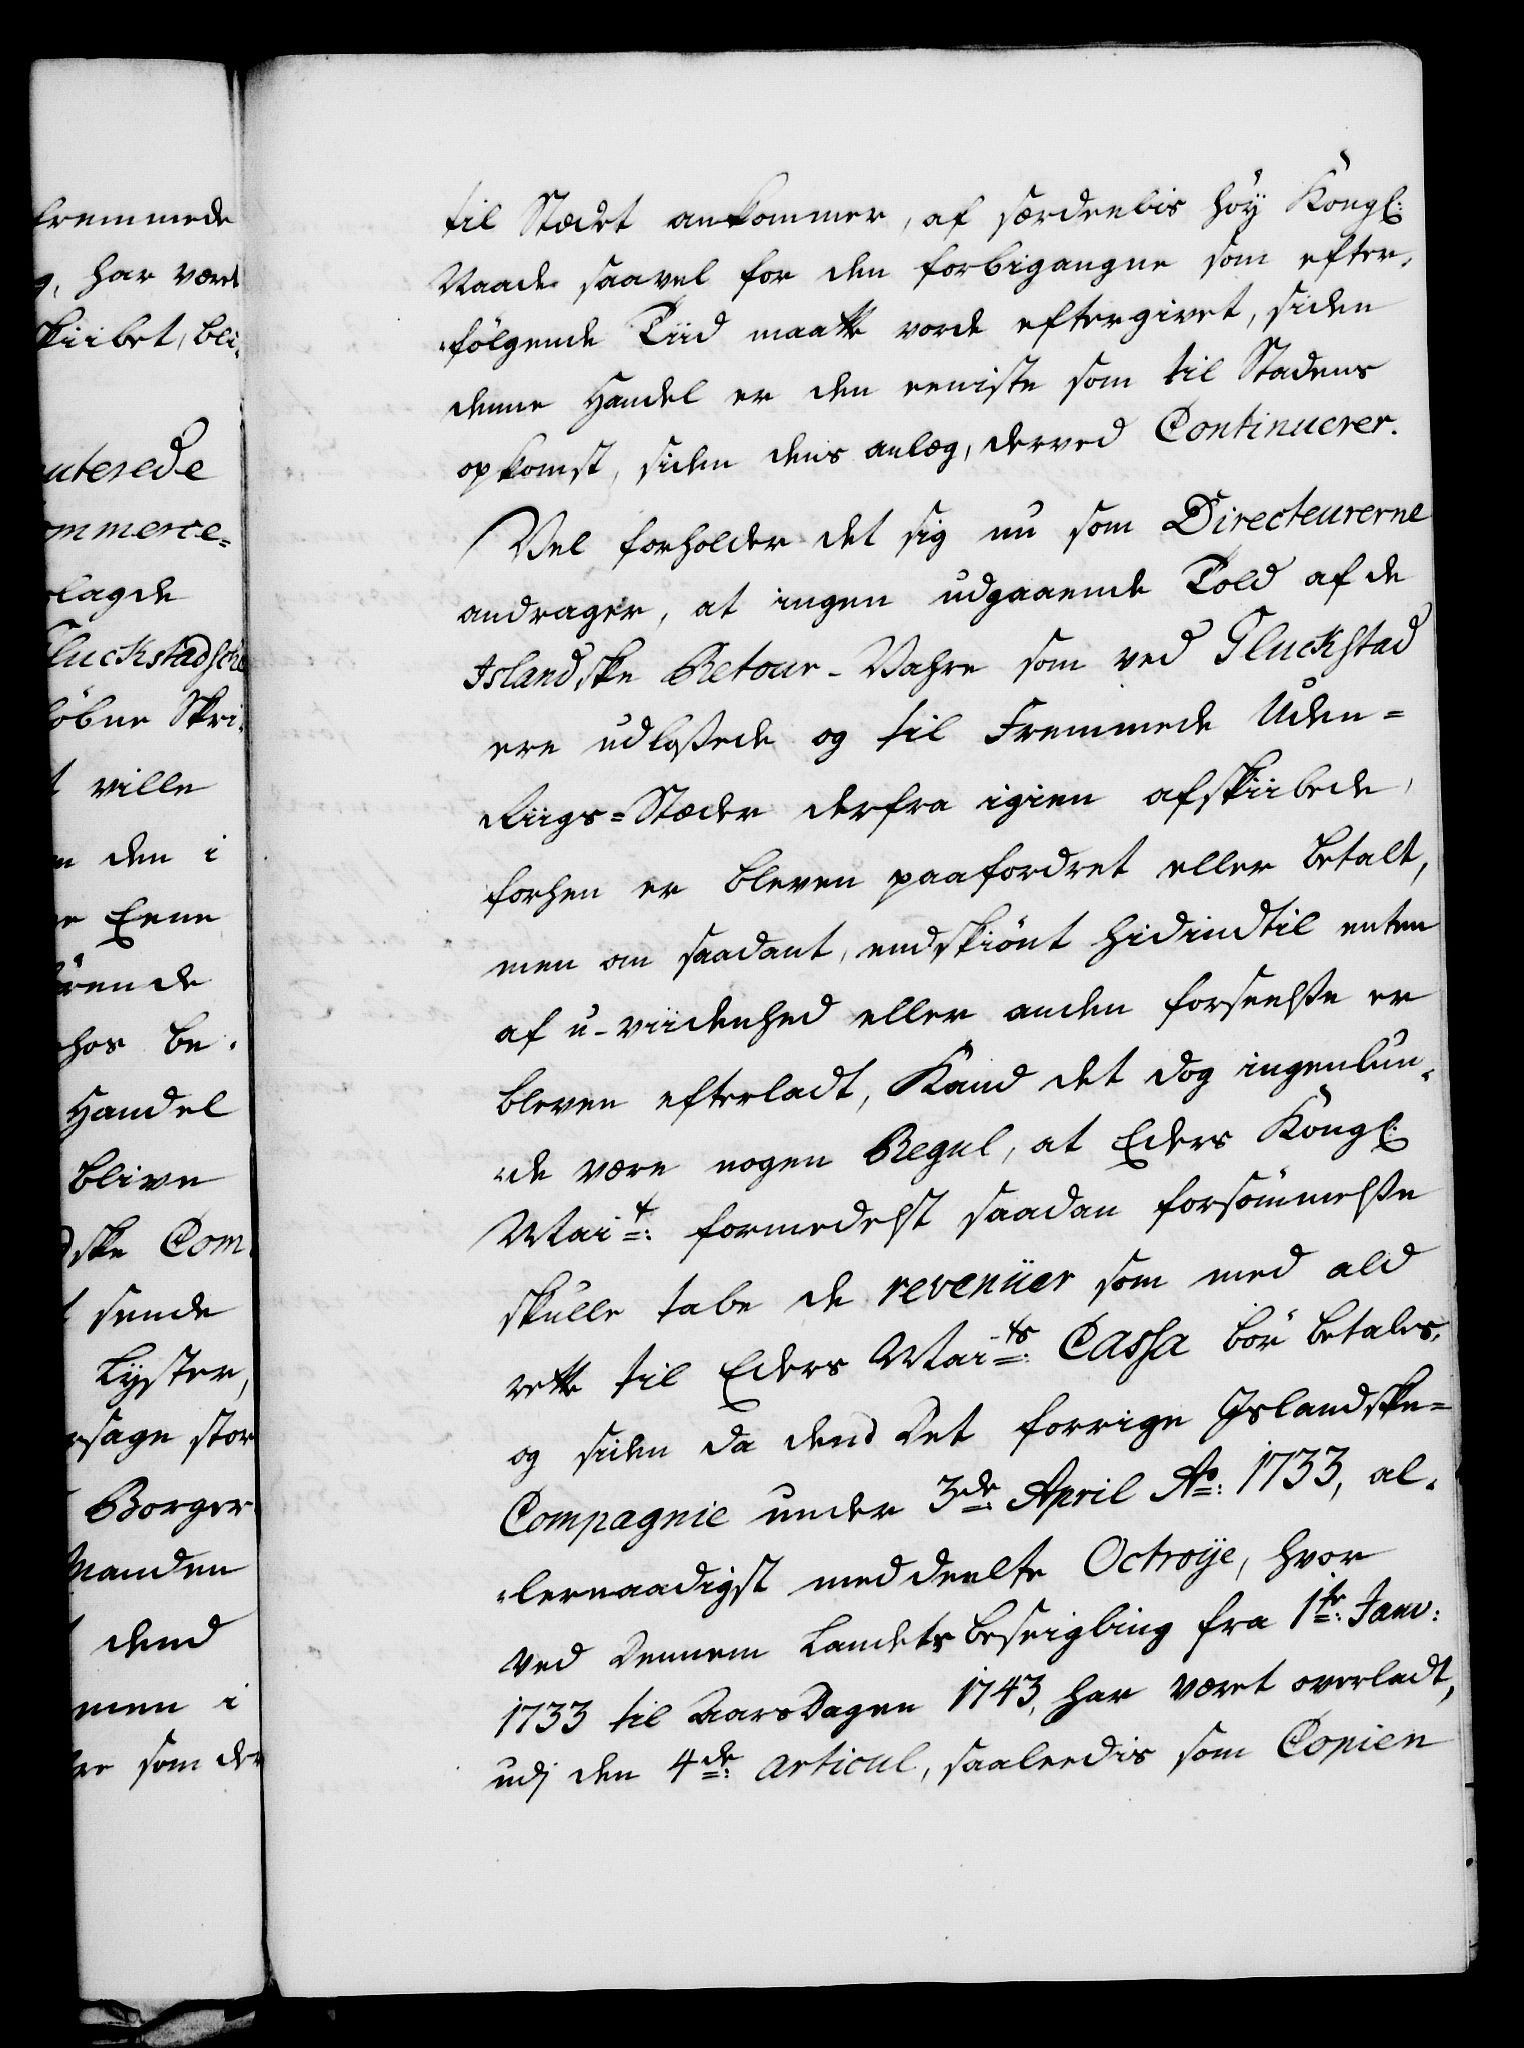 fremmede
g, har været
skiibet, bli-
uterede
ommerce-
lagde
Gluckstadsche
löbne Skri-
t ville
den i
Eene
rende
hos be-
Handel
blive
dske Com-
t sende
Lyster,
sage stor
Borger-
Manden
dend
men i
som der
til Stædet ankommer, af særdeelis höy Kongl:
Naade saavel for den forbigangne som efter-
fölgende Tiid maatte vorde eftergivet, siden
denne Handel er den eeniste som til Stadens
opkomst, siden dens anlæg, derved Continuerer.
Vel forholder det sig nu som Directeurerne
andrager, at ingen udgaaende Told af de
Islandske Retour-Vahre som ved Gluckstad
ere udlossede og til Fremmede Uden-
Riigs-Stæder derfra igien afskiibede,
forhen er bleven paafordret eller betalt,
men om saadant, endskiönt hidindtil enten
af u-viidenhed eller anden forseelsse er
bleven efterladt, Kand det dog ingenlun-
de være nogen Regul, at Eders Kongl:
Mait: formedelst saadan forsömmelsse
skulle tabe de revenüer som med ald
rette til Eders Maits: Cassa bör betales,
og siden da dend Det forrige Islandske-
Compagnie under 3de: April Ao: 1733, al-
lernaadigst meddeelte Octroÿe, hvor
ved Dennem Landets beseigling fra 1te: Janv:
1733 til Aars Dagen 1743, har været overladt,
udj den 4de: articul, saaleedis som Copien